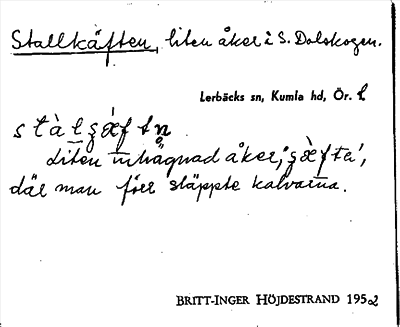 Stallkäften, liten åker i S. Dalskogen.
Lerbäcks sn, Kumla hd, Ör. l.
Liten inhägnad åker,
där man förr släppte kalvarna.
BRITT-INGER HÖJDESTRAND 1952